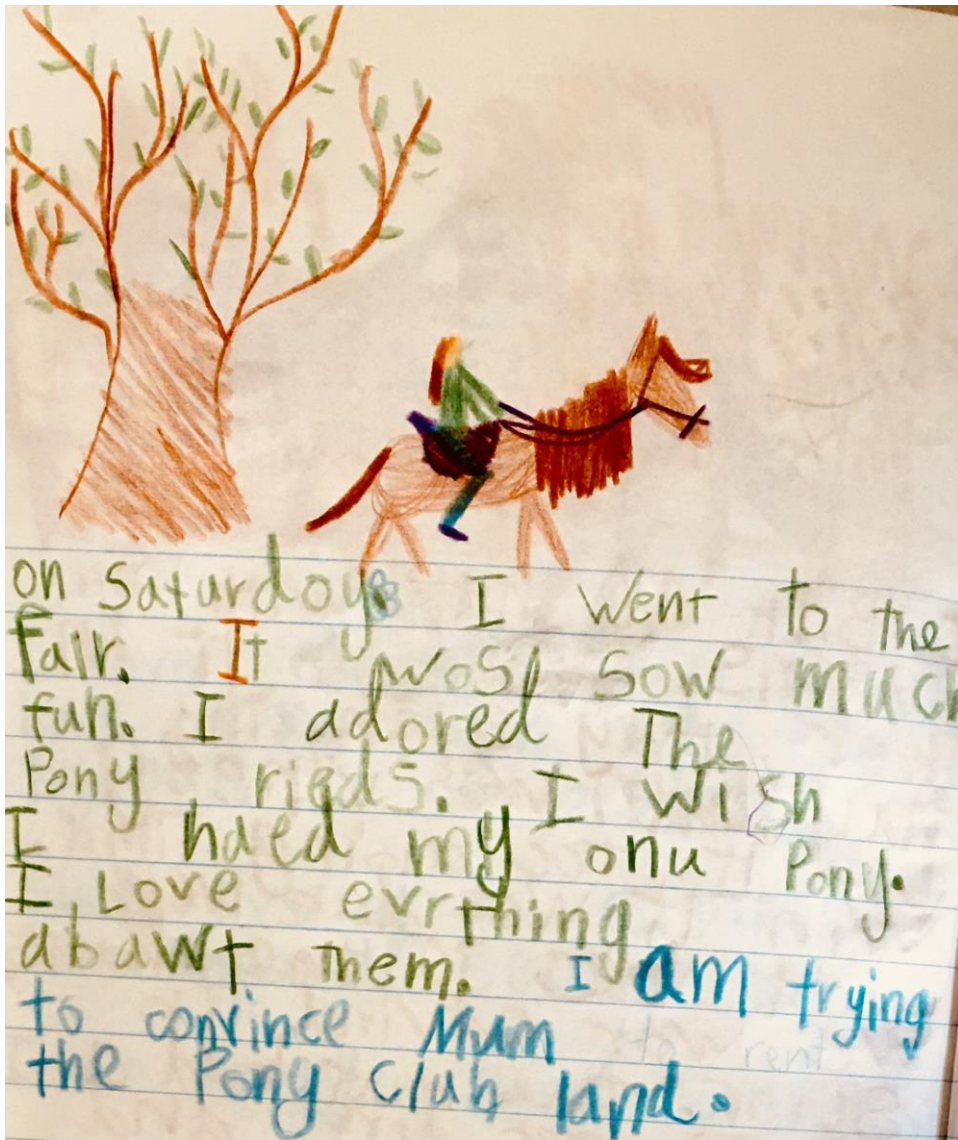 on Saturday I went to the
Fair. It wosl sow much
fun. I adored The
Pony rieds. I wish
I haed my onu Pony.
I Love evrthing
abawt them. I am trying
to convince Mum to rent
the Pony club land.